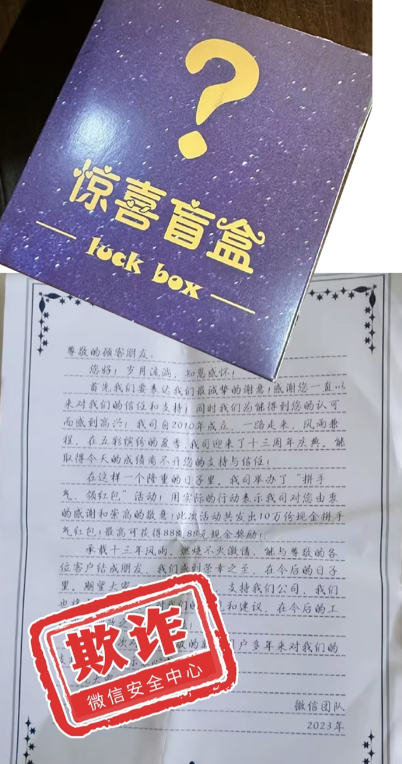 ?
惊喜盲盒
luck box
尊敬的顾客朋友：
您好！岁月流淌，知恩感怀！
首先我们要表达我们最诚挚的谢意！感谢您一直以
来对我们的信任和支持！同时我们为能得到您的认可
而感到高兴！我司自2010年成立，一路走来，风雨兼
程，在五彩缤纷的盈季，我司迎来了十三周年庆典。能
取得今天的成绩离不开您的支持与信任！
在这样一个隆重的日子里，我司举办了“拼手
气、领红包”活动！用实际的行动表示我司对您由衷
的感谢和崇高的敬意！此次活动共发出10万份现金拼手
气红包！最高可获得8888元现金奖励！
承载十三年风雨，燃烧不火激情，能与尊敬的各
位客户结成朋友，我们感到荣幸之至，在今后的日子
里，期望大家 支持我们公司，我们
也 和建议，在今后的工
户多年来对我们的
欺诈
微信安全中心
微信团队
2023年